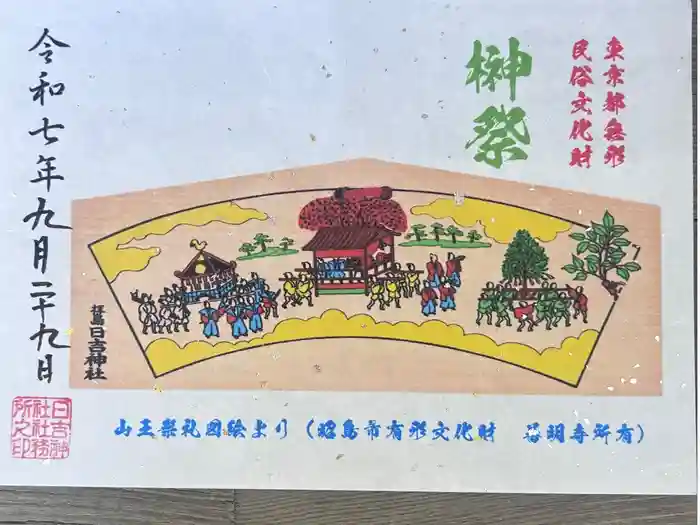 東京都無形
民俗文化財
榊祭
令和七年九月二十九日
拝島日吉神社
日吉神
社社務
所之印
山王祭礼図絵より（昭島市有形文化財　普明寺所有）